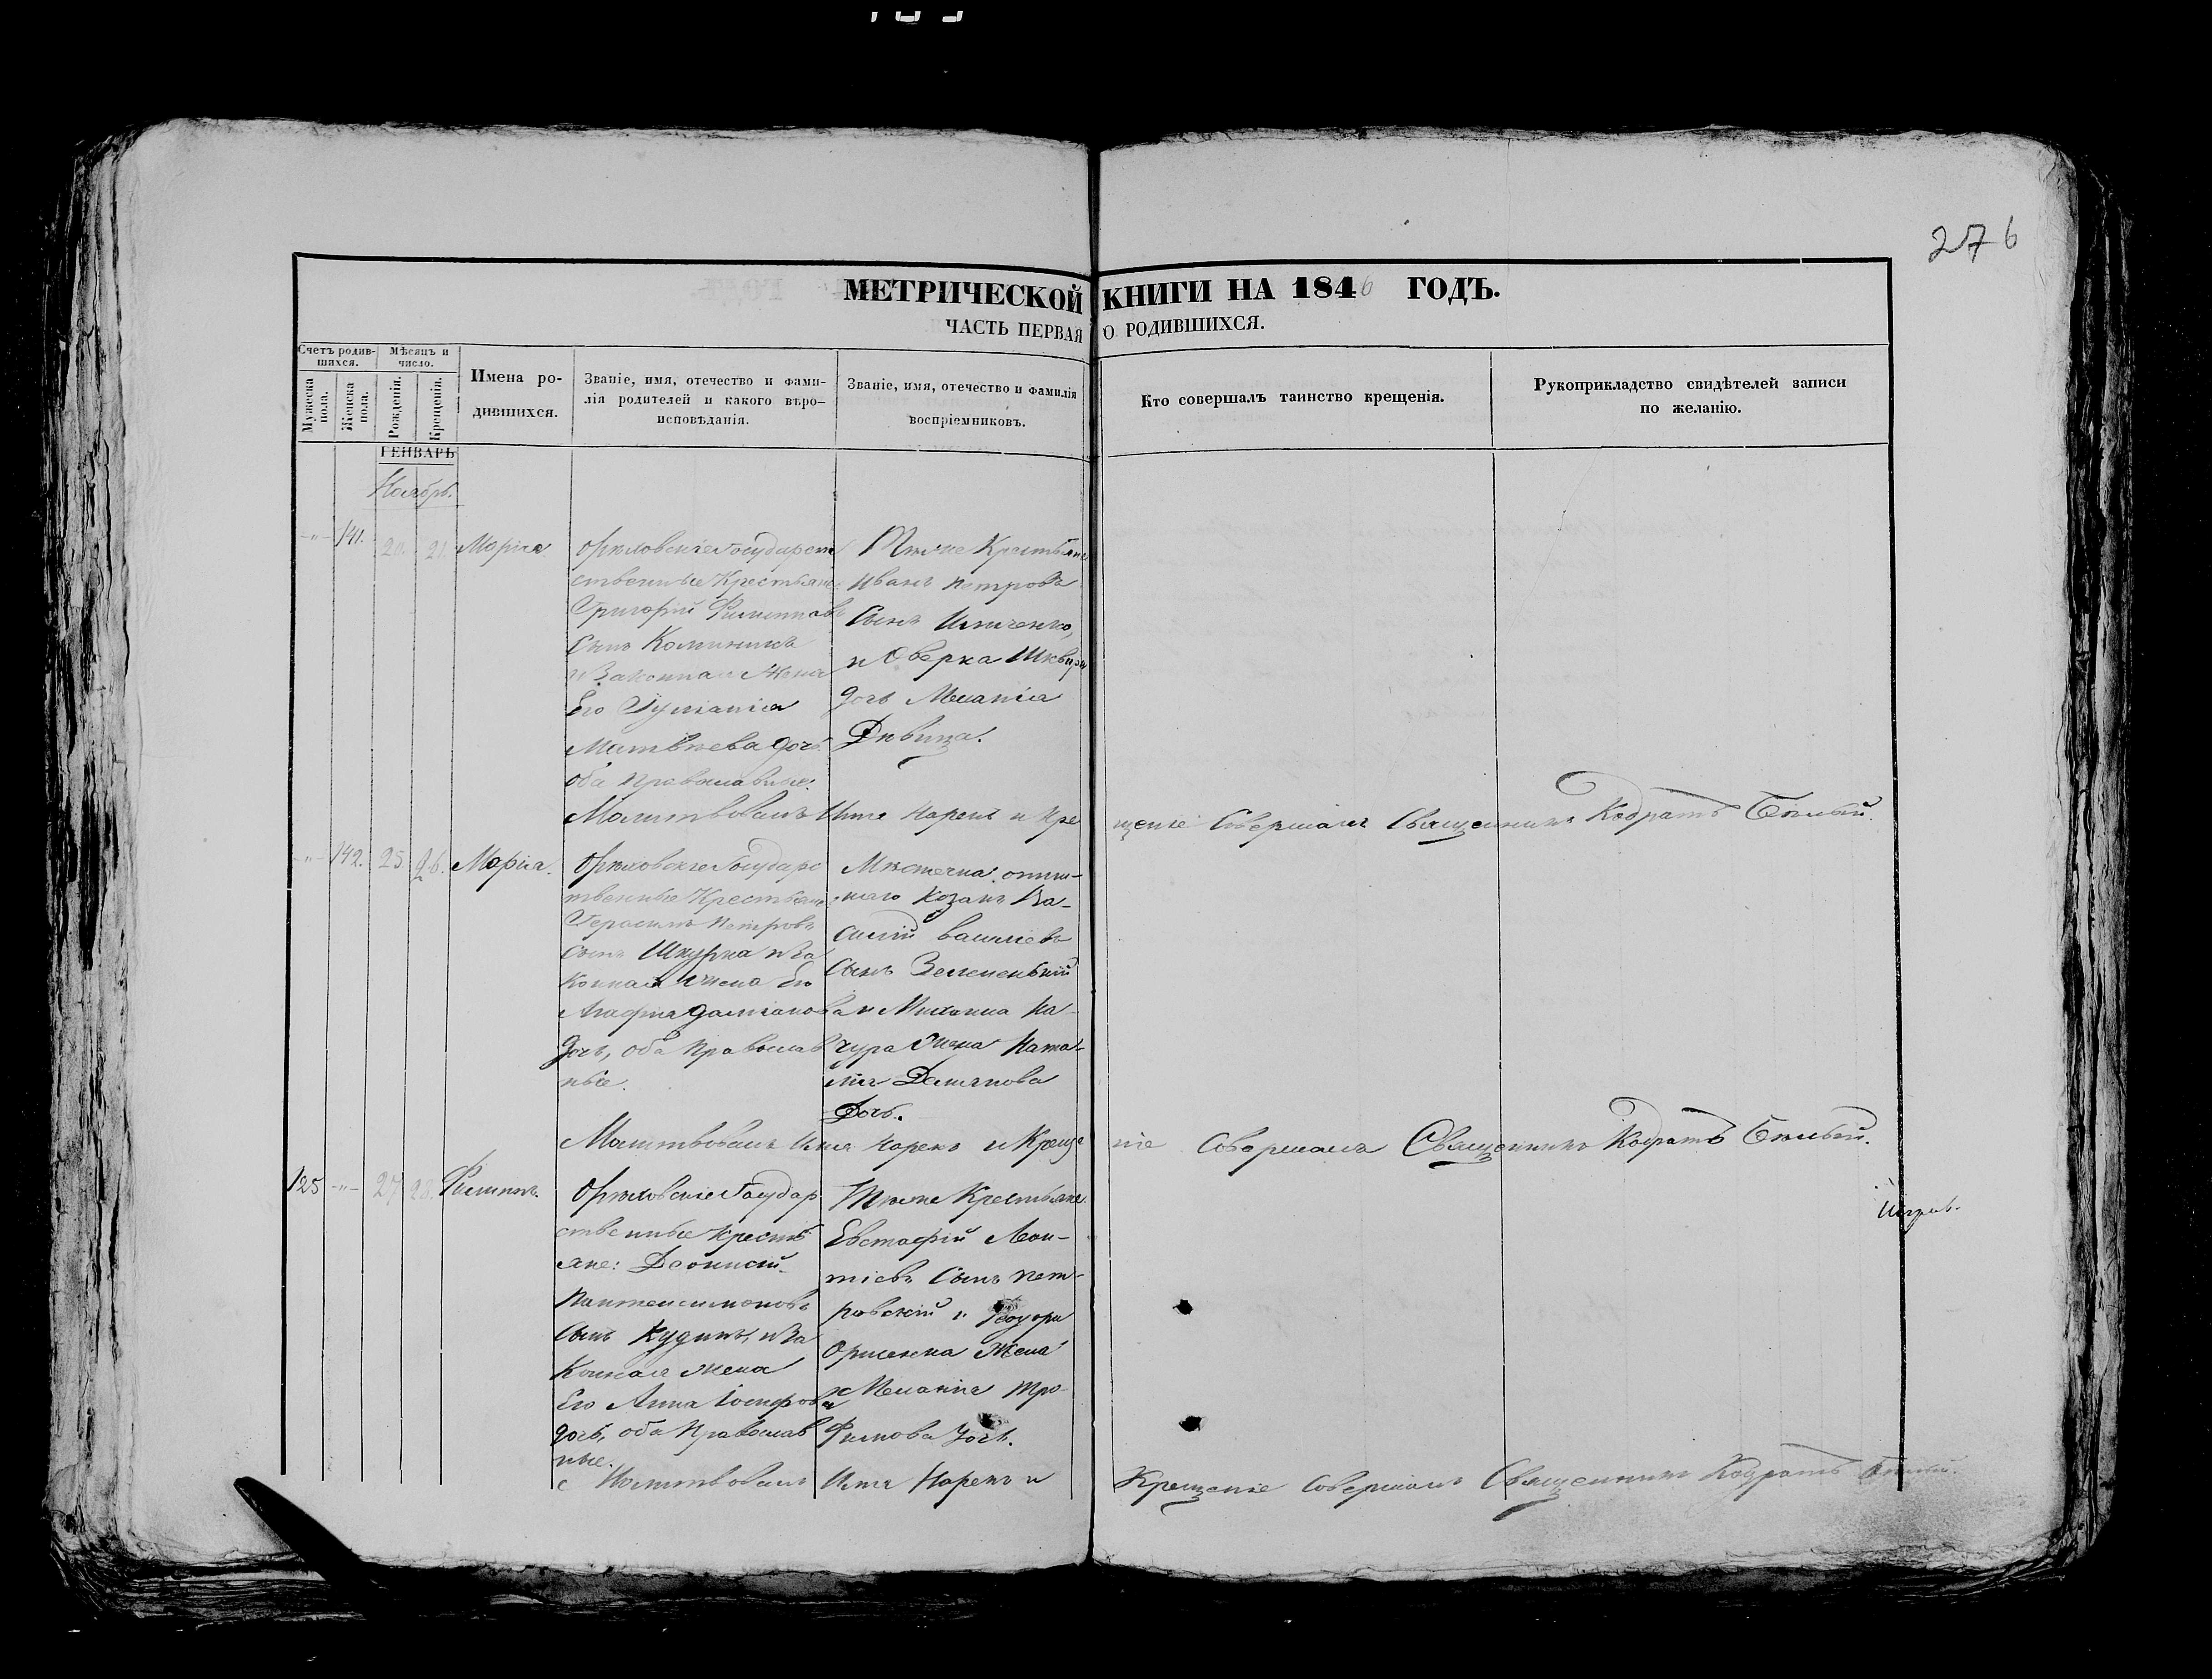 276
МЕТРИЧЕСКОЙ КНИГИ НА 1846 ГОДЪ.
ЧАСТЬ ПЕРВАЯ О РОДИВШИХСЯ.
Счетъ родив-
шихся.
Мужеска
пола.
Женска
пола.
Мѣсяцъ и
число.
Рожденія.
Крещенія.
Имена ро-
дившихся.
Званіе, имя, отечество и фами-
лія родителей и какого вѣро-
исповѣданія.
Званіе, имя, отечество и фамилія
воспріемниковъ.
Кто совершалъ таинство крещенія.
Рукоприкладство свидѣтелей записи
по желанію.
ГЕНВАРЬ
Ноябрь.
-"- 141. 20. 21. Марія
Орѣховскіе Государст
ственные Крестьяне
Григорій Филиповъ
Сынъ
и Законная Жена
Его
Матвѣева дочь
оба Православные.
Тѣже Крестьяне
Иванъ Петровъ
Сынъ Ильченко,
и
дочь Меланія
Дѣвица.
Молитвовалъ Имя Нарекъ и Кре
щеніе Совершалъ Священникъ Кодратъ Бѣлый.
-"- 142. 25. 26. Марія.
Орѣховскіе Государс
твенные Крестьяне
Герасимъ Петровъ
сынъ Шкурка и За
конная жена Его
Агафія Даміанова
дочь, оба Православ
ные.
Мѣстечка
Козакъ Ва-
силій Василіевъ
Сынъ Зелененькій
и
жена Ната-
лія Демянова
Дочь.
Молитвовалъ Имя Нарекъ и Креще
ніе Совершалъ Священникъ Кодратъ Бѣлый.
125 -"- 27. 28. Филипъ.
Орѣховскіе Государ
ственные Кресть
яне: Діонисій
Пантелеимоновъ
Сынъ Кудинъ, и За
конная жена
Его Анна Іосифова
дочь, оба Православ
ные.
Тѣже Крестьяне
Евстафій Леон-
тіевъ Сынъ Пет-
ровскій и
Жена
Меланія Тро-
фимова дочь.
Молитвовалъ Имя Нарекъ и
Крещеніе Совершалъ Священникъ Кодратъ Бѣлый.